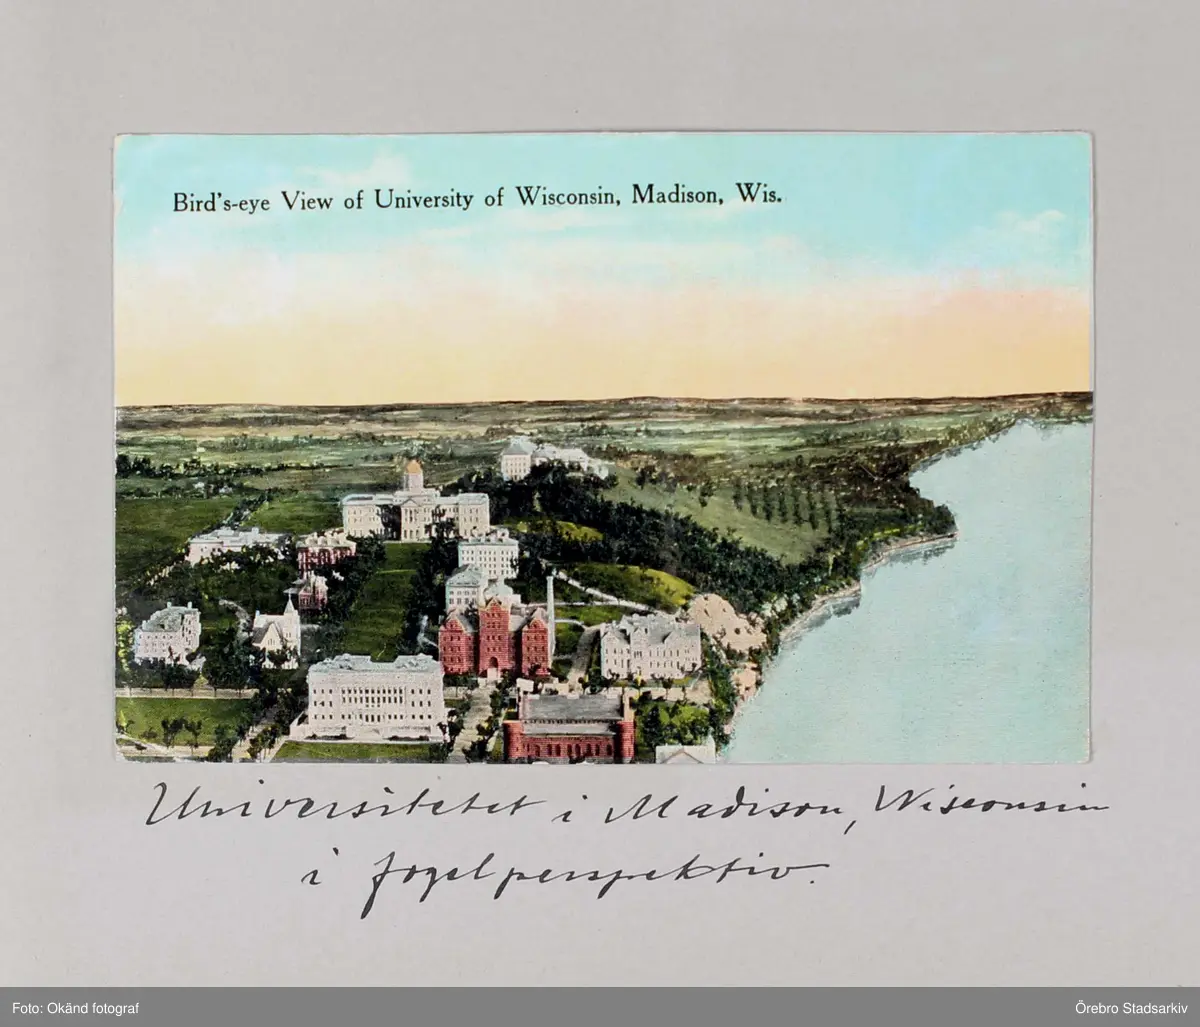 Bird's-eye View of University of Wisconsin, Madison, Wis.
Universitetet i Madison, Wisconsin
i fogelperspektiv.
Foto: Okänd fotograf
Örebro Stadsarkiv